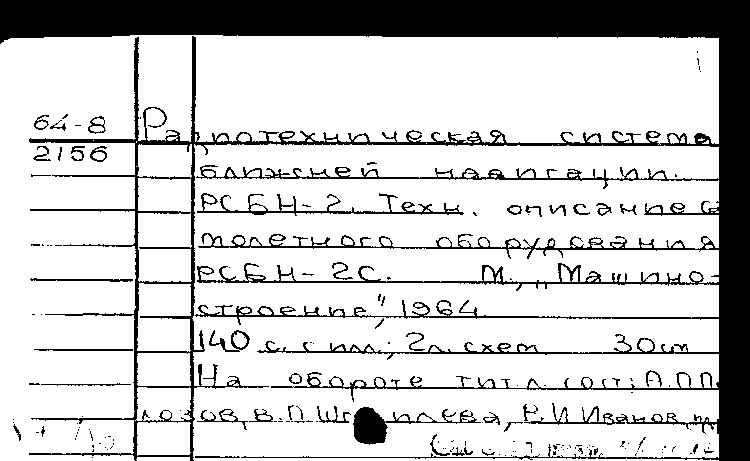 64-8
Радиотехническая система
2156
ближней навигации.
РСБН-2. Техн. описание са
молетного оборудования
РСБН-2С. М., „Машино-
строение", 1964
140 с. с илл.; 2л. схем 30см
На обороте тит. л. сост: А.П.П
лозов, В.П. , И Иванов,